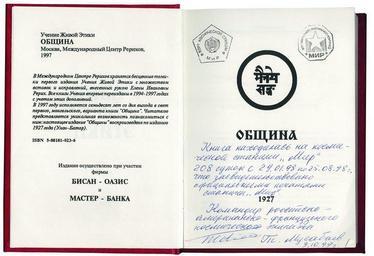 Учение Живой Этики
ОБЩИНА
Москва, Международный Центр Рерихов,
1997
В Международном Центре Рерихов хранятся бесценные тома-
ки первого издания Учения Живой Этики с множеством
вставок и исправлений, внесенных рукою Елены Ивановны
Рерих. Все Книги Учения впервые переизданы в 1994-1997 годах
с учетом этих дополнений.
В 1997 году исполняется семьдесят лет со дня выхода в свет
первого, монгольского, варианта книги "Община". Читателю
представляется уникальная возможность познакомиться с
ним: настоящее издание "Общины" воспроизведено по изданию
1927 года (Улан-Батор).
ISBN 5-86101-023-6
Издание осуществлено при участии
фирмы
БИСАН - ОАЗИС
и
МАСТЕР - БАНКА
МИР
ОБЩИНА
Книга находилась на косми-
ческой станции „Мир"
208 суток с 29.01.98 по 25.08.98г.
что засвидетельствовано
официальными печатями
станции „Мир"
1927
Командир российско-
американско-французского
космического экипажа
Т. Мусабаев